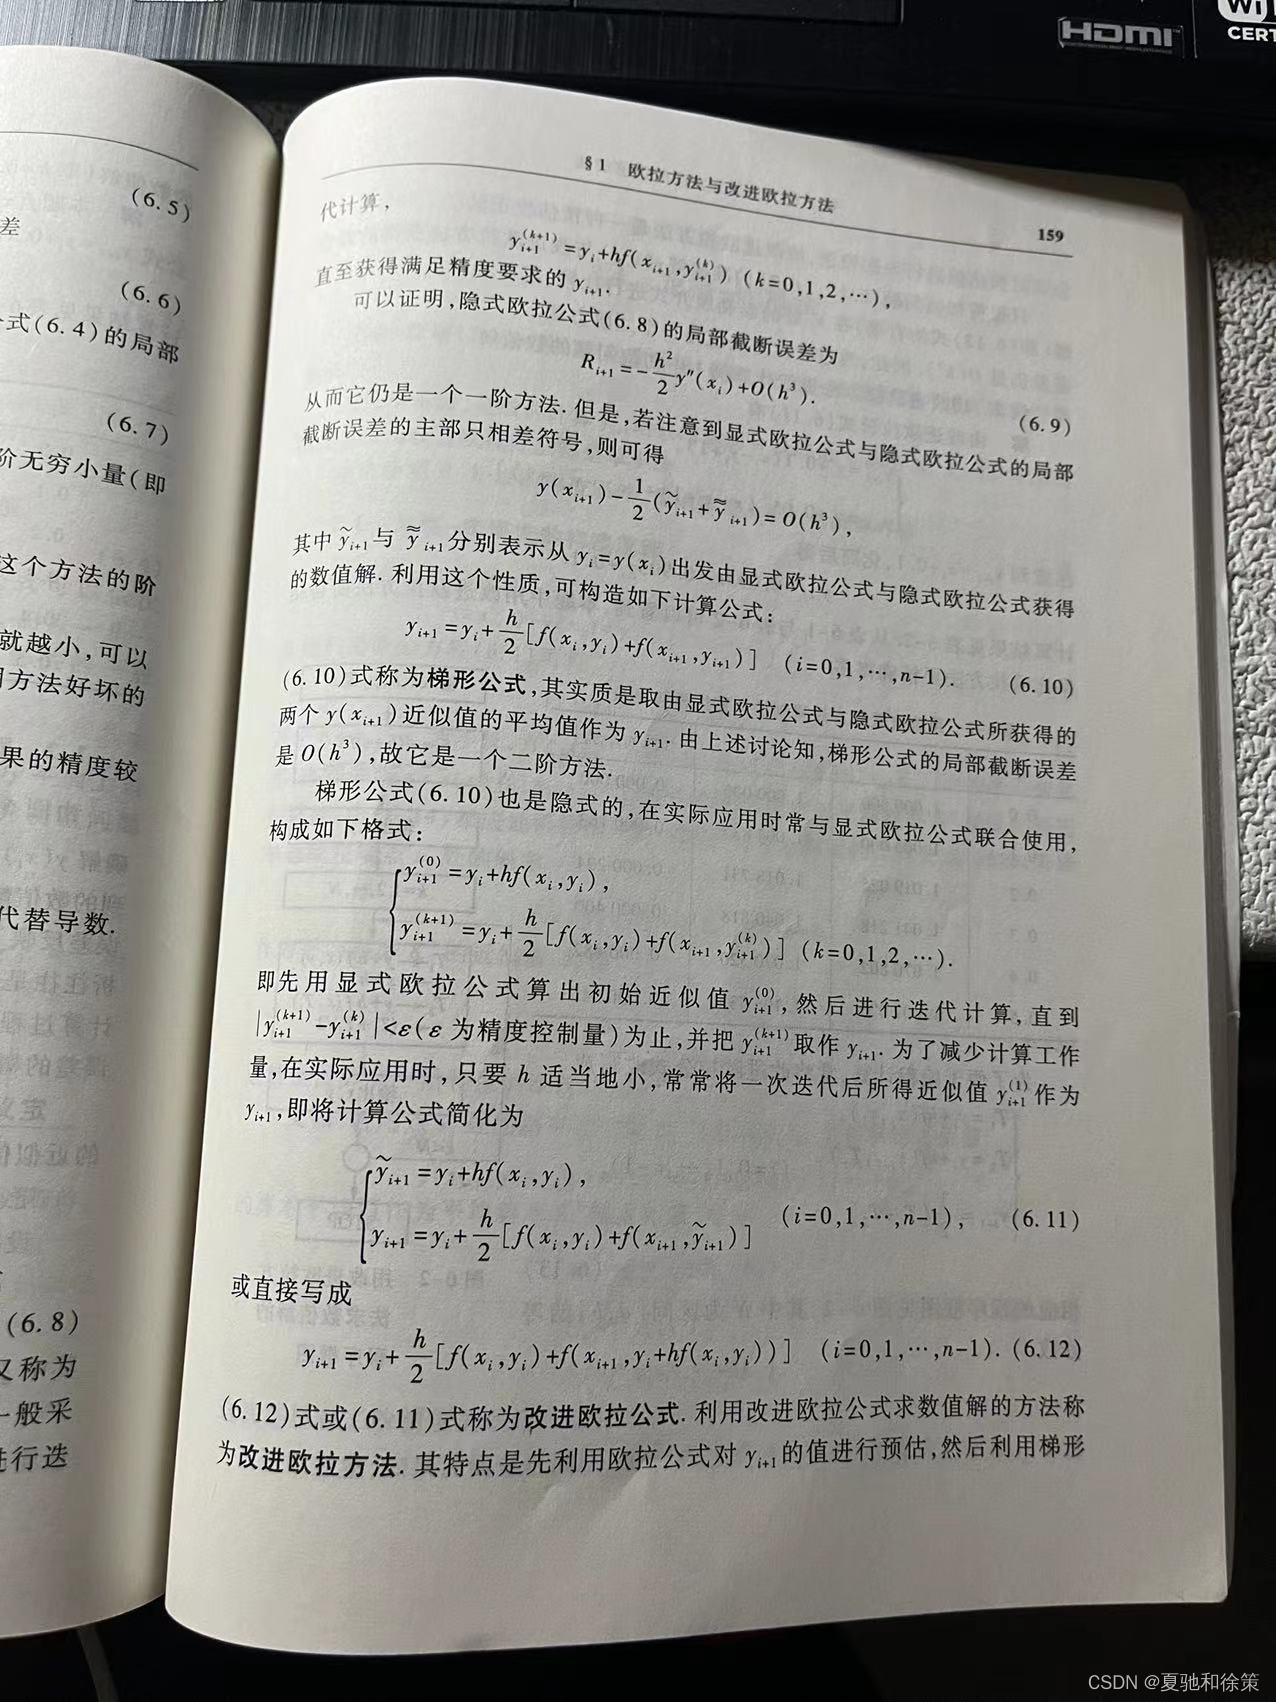 HDMI
Wi
CERT
(6.5)
差
(6.6)
式(6.4)的局部
(6.7)
阶无穷小量(即
这个方法的阶
就越小,可以
方法好坏的
果的精度较
代替导数.
(6.8)
又称为
一般采
进行迭
§1 欧拉方法与改进欧拉方法
159
代计算,
y_{i+1}^{(k+1)}=y_i+hf(x_{i+1},y_{i+1}^{(k)}) (k=0,1,2,…),
直至获得满足精度要求的 y_{i+1}.
可以证明,隐式欧拉公式(6.8)的局部截断误差为
R_{i+1}=-\frac{h^2}{2}y″(x_i)+O(h^3). (6.9)
从而它仍是一个一阶方法.但是,若注意到显式欧拉公式与隐式欧拉公式的局部
截断误差的主部只相差符号,则可得
y(x_{i+1})-\frac{1}{2}(\tilde{y}_{i+1}+\tilde{\tilde{y}}_{i+1})=O(h^3),
其中 \tilde{y}_{i+1} 与 \tilde{\tilde{y}}_{i+1} 分别表示从 y_i=y(x_i)出发由显式欧拉公式与隐式欧拉公式获得
的数值解.利用这个性质,可构造如下计算公式:
y_{i+1}=y_i+\frac{h}{2}[f(x_i,y_i)+f(x_{i+1},y_{i+1})] (i=0,1,…,n-1). (6.10)
(6.10)式称为梯形公式,其实质是取由显式欧拉公式与隐式欧拉公式所获得的
两个 y(x_{i+1})近似值的平均值作为 y_{i+1}.由上述讨论知,梯形公式的局部截断误差
是 O(h^3),故它是一个二阶方法.
梯形公式(6.10)也是隐式的,在实际应用时常与显式欧拉公式联合使用,
构成如下格式:
y_{i+1}^{(0)}=y_i+hf(x_i,y_i),
y_{i+1}^{(k+1)}=y_i+\frac{h}{2}[f(x_i,y_i)+f(x_{i+1},y_{i+1}^{(k)})] (k=0,1,2,…).
即先用显式欧拉公式算出初始近似值 y_{i+1}^{(0)},然后进行迭代计算,直到
|y_{i+1}^{(k+1)}-y_{i+1}^{(k)}|<ε(ε 为精度控制量)为止,并把 y_{i+1}^{(k+1)} 取作 y_{i+1}.为了减少计算工作
量,在实际应用时,只要 h 适当地小,常常将一次迭代后所得近似值 y_{i+1}^{(1)} 作为
y_{i+1},即将计算公式简化为
\tilde{y}_{i+1}=y_i+hf(x_i,y_i),
y_{i+1}=y_i+\frac{h}{2}[f(x_i,y_i)+f(x_{i+1},\tilde{y}_{i+1})] (i=0,1,…,n-1), (6.11)
或直接写成
y_{i+1}=y_i+\frac{h}{2}[f(x_i,y_i)+f(x_{i+1},y_i+hf(x_i,y_i))] (i=0,1,…,n-1). (6.12)
(6.12)式或(6.11)式称为改进欧拉公式.利用改进欧拉公式求数值解的方法称
为改进欧拉方法.其特点是先利用欧拉公式对 y_{i+1} 的值进行预估,然后利用梯形
CSDN @夏驰和徐策